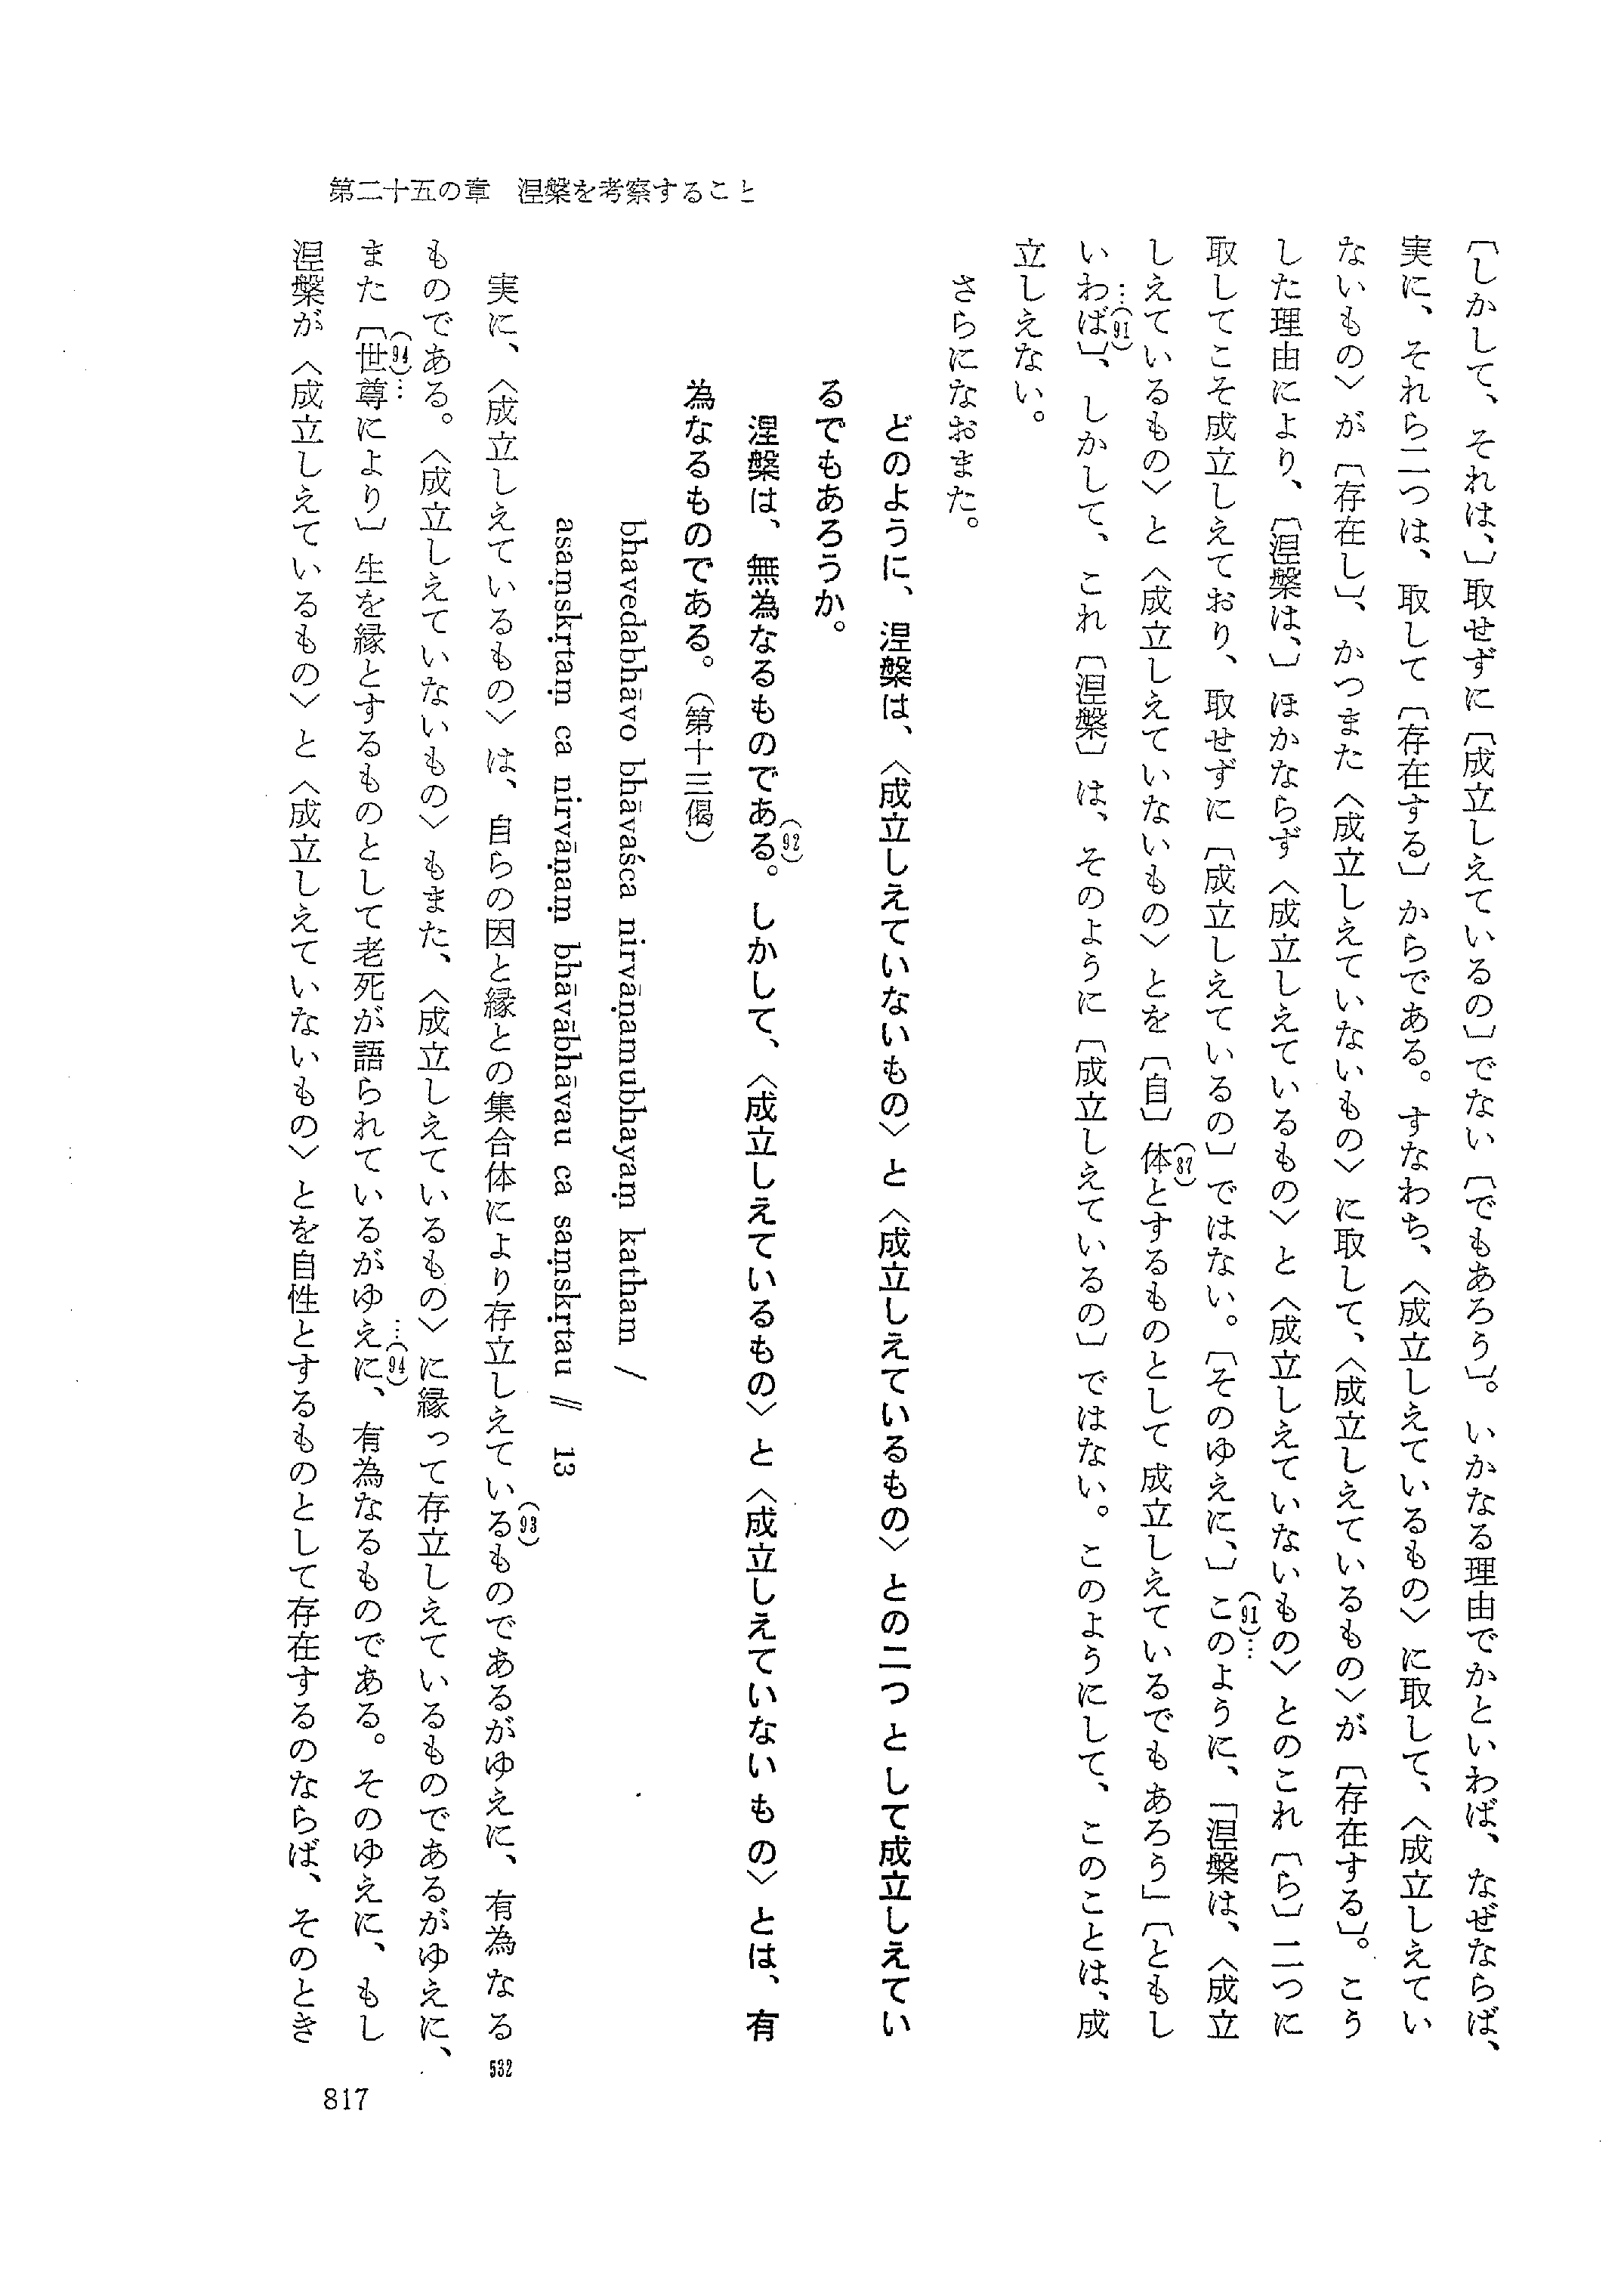 第二十五の章　涅槃を考察すること
〔しかして、それは、〕取せずに〔成立しえているの〕でない〔でもあろう〕。いかなる理由でかといわば、なぜならば、
実に、それら二つは、取して〔存在する〕からである。すなわち、〈成立しえているもの〉に取して、〈成立しえてい
ないもの〉が〔存在し〕、かつまた〈成立しえていないもの〉に取して、〈成立しえているもの〉が〔存在する〕。こう
した理由により、〔涅槃は、〕ほかならず〈成立しえているもの〉と〈成立しえていないもの〉とのこれ〔ら〕二つに
取してこそ成立しえており、取せずに〔成立しえているの〕ではない。〔そのゆえに、〕このように、(91)…「涅槃は、〈成立
しえているもの〉と〈成立しえていないもの〉とを〔自〕体(87)とするものとして成立しえているでもあろう」〔ともし
いわば〕、…(91)しかして、これ〔涅槃〕は、そのように〔成立しえているの〕ではない。このようにして、このことは、成
立しえない。
さらになおまた。
どのように、涅槃は、〈成立しえていないもの〉と〈成立しえているもの〉との二つとして成立しえてい
るでもあろうか。
涅槃は、無為なるものである(92)。しかして、〈成立しえているもの〉と〈成立しえていないもの〉とは、有
為なるものである。（第十三偈）
bhavedabhāvo bhāvaśca nirvāṇamubhayaṃ katham /
asaṃskṛtaṃ ca nirvāṇaṃ bhāvābhāvau ca saṃskṛtau // 13
実に、〈成立しえているもの〉は、自らの因と縁との集合体により存立しえている(93)ものであるがゆえに、有為なる
532
ものである。〈成立しえていないもの〉もまた、〈成立しえているもの〉に縁って存立しえているものであるがゆえに、
また〔(94)…世尊により〕生を縁とするものとして老死が語られているがゆえに、…(94)有為なるものである。そのゆえに、もし
涅槃が〈成立しえているもの〉と〈成立しえていないもの〉とを自性とするものとして存在するのならば、そのとき
817